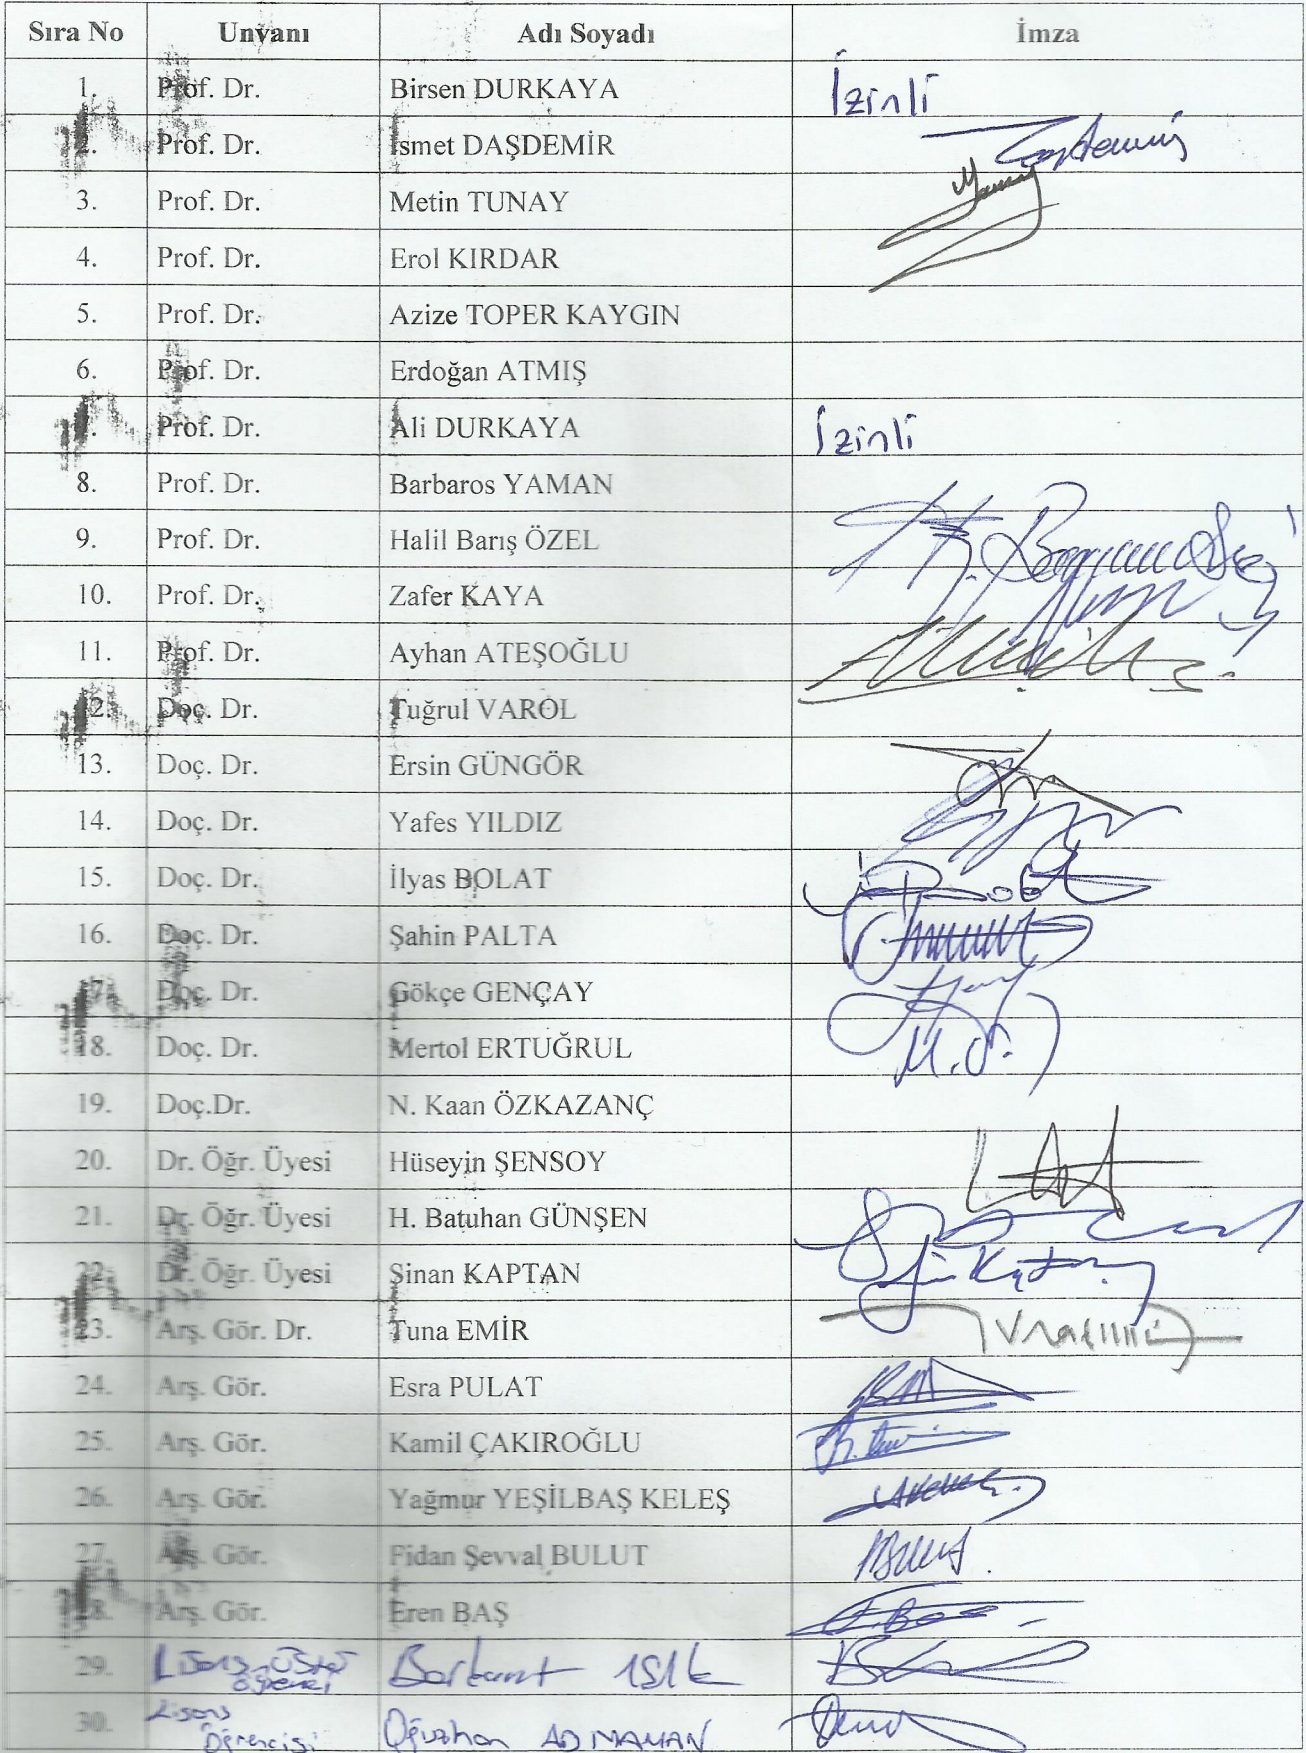 Sıra No Unvanı Adı Soyadı İmza
1. Prof. Dr. Birsen DURKAYA İzinli
2. Prof. Dr. İsmet DAŞDEMİR
3. Prof. Dr. Metin TUNAY
4. Prof. Dr. Erol KIRDAR
5. Prof. Dr. Azize TOPER KAYGIN
6. Prof. Dr. Erdoğan ATMIŞ
7. Prof. Dr. Ali DURKAYA İzinli
8. Prof. Dr. Barbaros YAMAN
9. Prof. Dr. Halil Barış ÖZEL
10. Prof. Dr. Zafer KAYA
11. Prof. Dr. Ayhan ATEŞOĞLU
12. Doç. Dr. Tuğrul VAROL
13. Doç. Dr. Ersin GÜNGÖR
14. Doç. Dr. Yafes YILDIZ
15. Doç. Dr. İlyas BOLAT
16. Doç. Dr. Şahin PALTA
17. Doç. Dr. Gökçe GENÇAY
18. Doç. Dr. Mertol ERTUĞRUL
19. Doç.Dr. N. Kaan ÖZKAZANÇ
20. Dr. Öğr. Üyesi Hüseyin ŞENSOY
21. Dr. Öğr. Üyesi H. Batuhan GÜNŞEN
22. Dr. Öğr. Üyesi Sinan KAPTAN
23. Arş. Gör. Dr. Tuna EMİR
24. Arş. Gör. Esra PULAT
25. Arş. Gör. Kamil ÇAKIROĞLU
26. Arş. Gör. Yağmur YEŞİLBAŞ KELEŞ
27. Arş. Gör. Fidan Şevval BULUT
28. Arş. Gör. Eren BAŞ
29. Lisans üstü öğrenci IŞIK
30. Lisans Öğrencisi Oğuzhan ADMAMAN